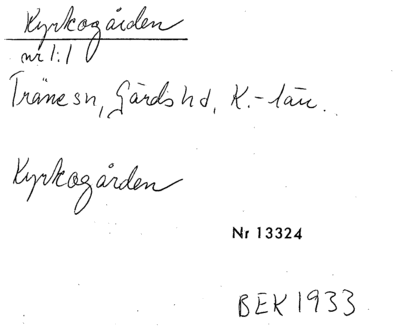 Kyrkogården
nr 1:1
Träne sn, Gärds hd, K.-län.
Kyrkogården
Nr 13324
BEK 1933